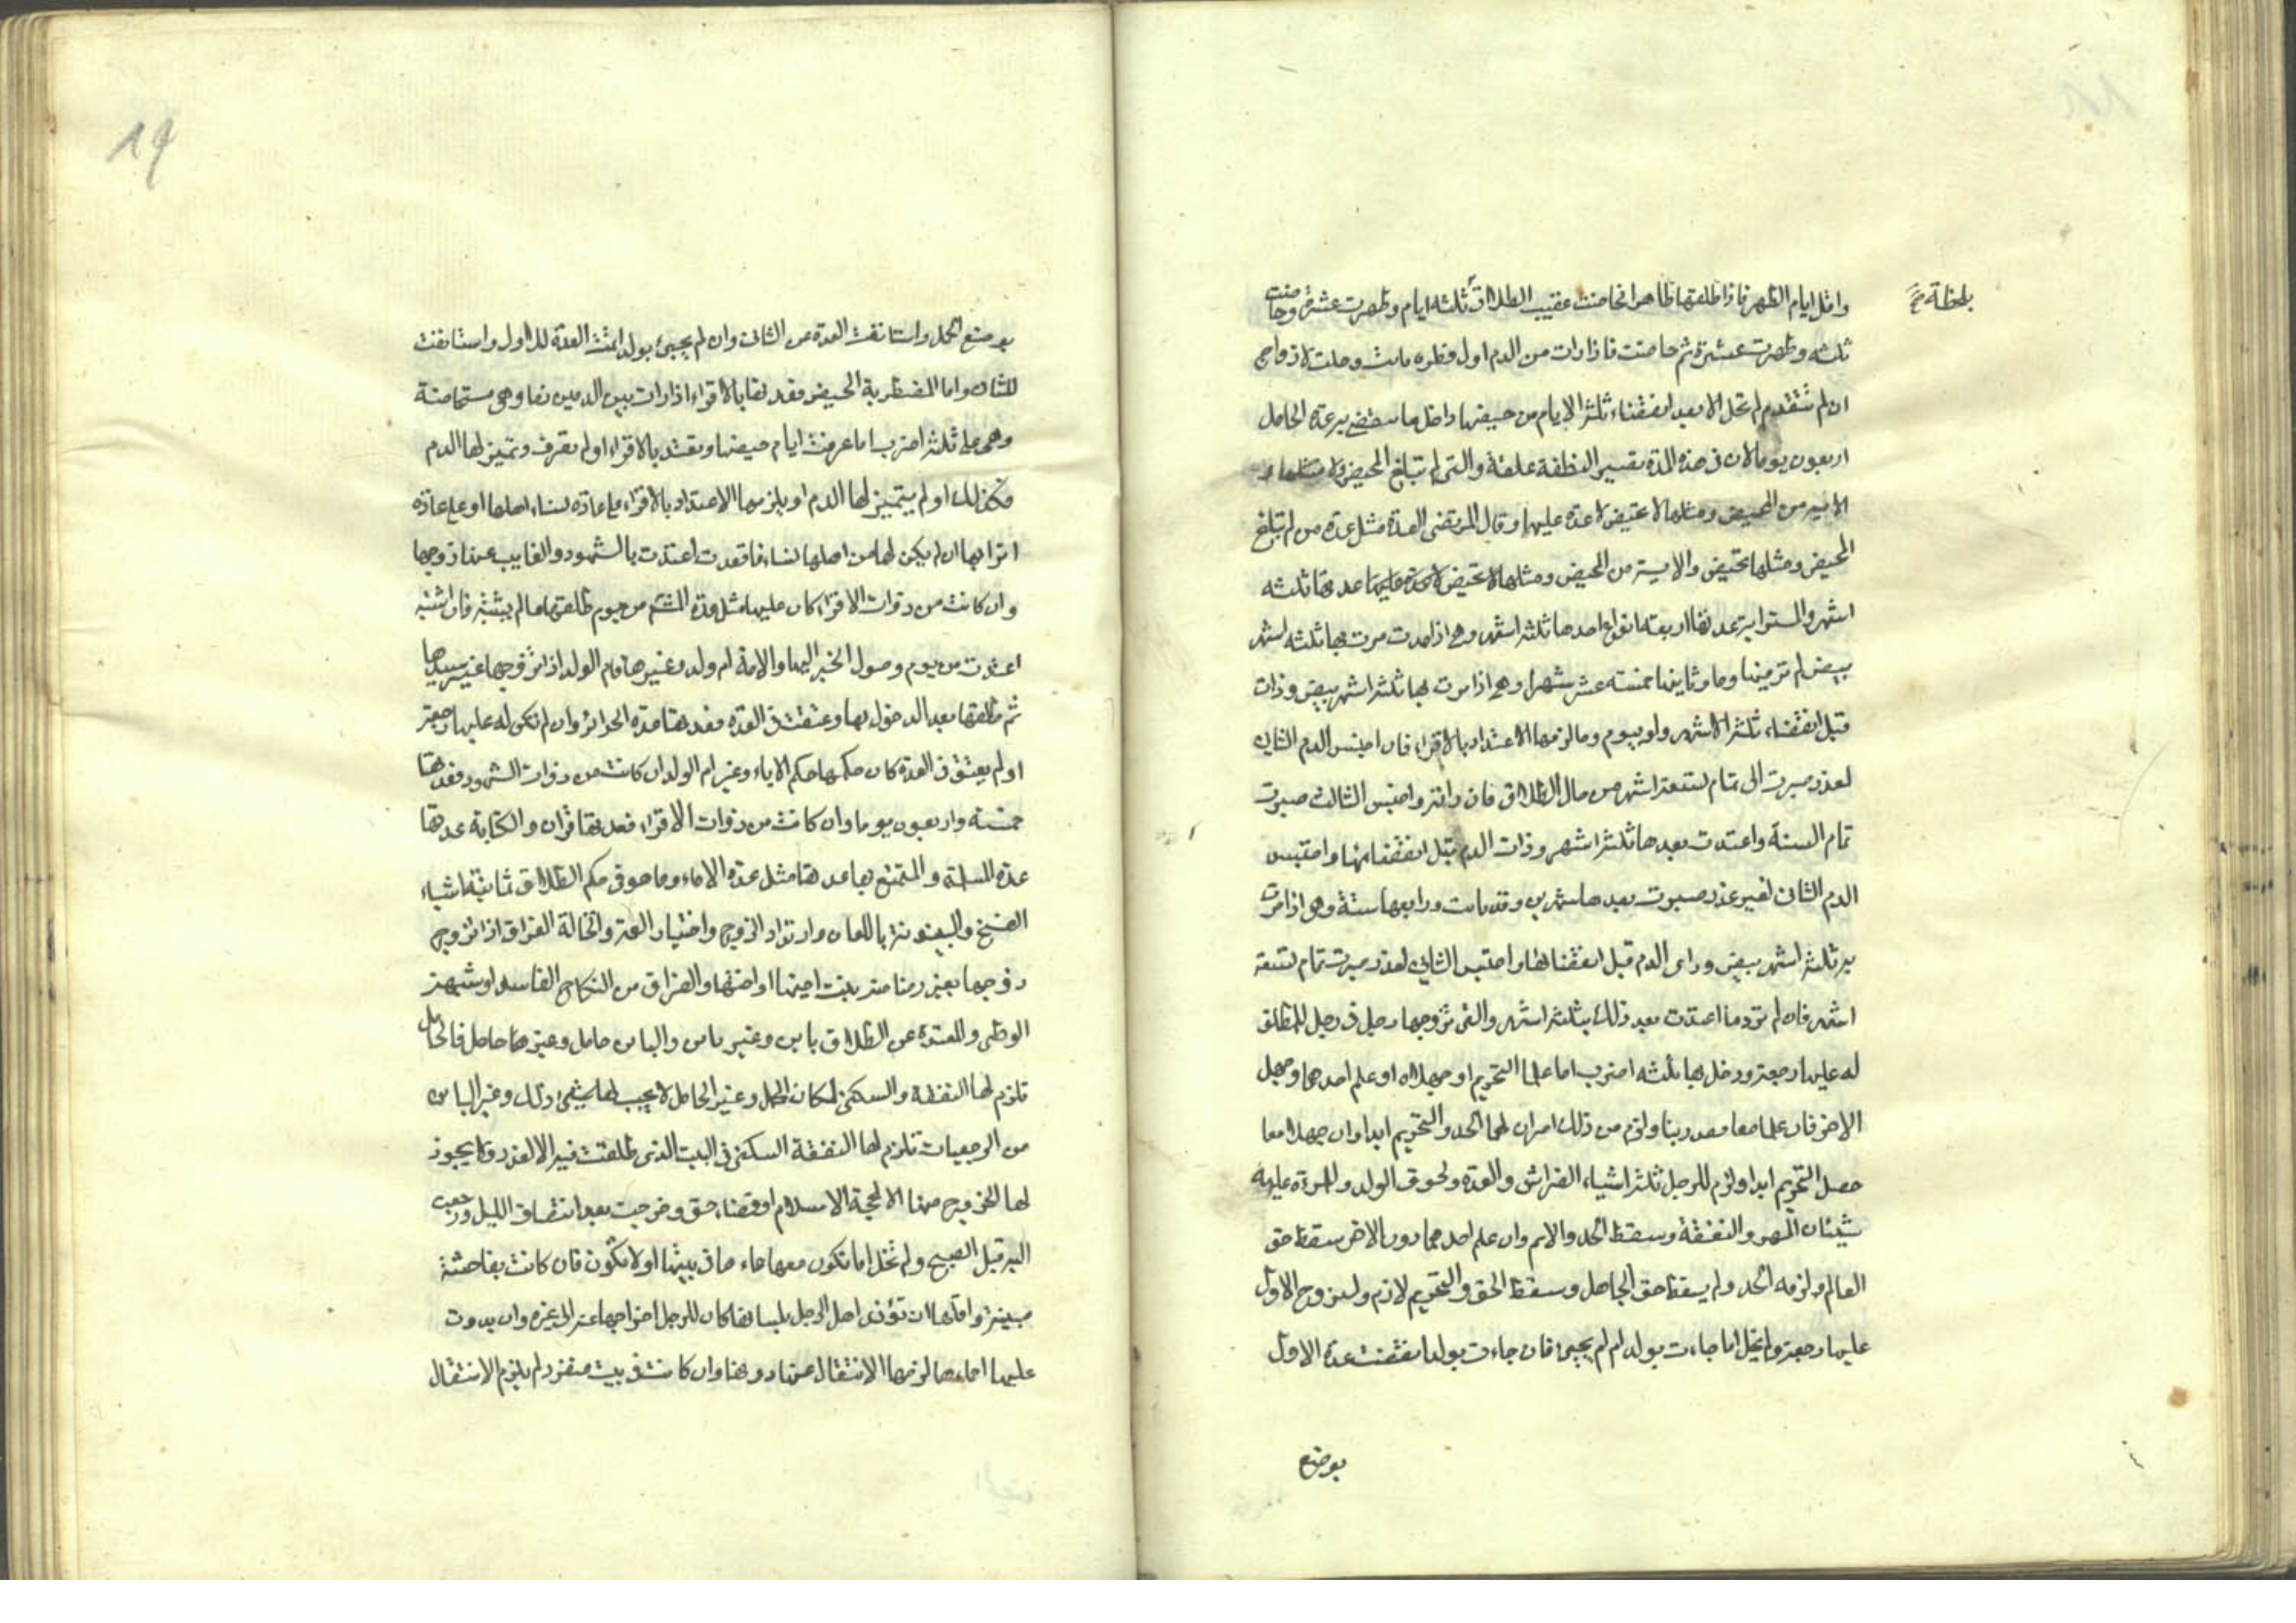 واقل ايام الطهر فاذا طلقها طاهرا فحاضت عقيب الطلاق ثلثه ايام وطهرت عشرة وحاضت
بلحظة صح
ثلثه وطهرت عشرة ثم حاضت فاذا رات من الدم اول قطره بانت وحلت للازواج
ان لم تتقدم لم تحل الا بعد انقضاء ثلثة الايام من حيضها واقل ما ينقضي به عدة الحامل
اربعون يوما لان في هذه المدة تصير النطفة علقة والتي لم تبلغ المحيض ولا مثلها و
الايسه من المحيض ومثلها لا تحيض لا عدة عليها وقال المرتضى العدة مثل عدة من لم تبلغ
المحيض ومثلها تحيض والايسة من المحيض ومثلها لا تحيض عدتها ثلثه
اشهر والمسترابة عدتها اربعة انواع احدها ثلثة اشهر وهي اذا مرت بها ثلثه اشهر
بيض لم تر فيها دما وثانيها خمسته عشر شهرا وهي اذا مرت بها ثلثة اشهر بيض وذات
قبل انقضاء ثلثة الاشهر ولو بيوم دما لزمها الاعتداد بالاقراء فان احتبس الدم الثاني
لعذر صبرت الى تمام تسعة اشهر من حال الطلاق فان راته واحتبس الثالث صبرت
تمام السنة واعتدت بعدها ثلثة اشهر وذات الدم قبل انقضائها واحتبس
الدم الثاني لغير عذر صبرت بعدها شهرين وقد بانت ورابعها ستة وهي اذا مرت
به ثلثة اشهر بيض وراى الدم قبل انقضائها واحتبس الثاني لعذر صبرت تمام تسعة
اشهر فان لم تر دما اعتدت بعد ذلك بثلثة اشهر والتي تزوجها رجل في رجل للمطلق
له عليها رجعة ودخل بها ثلثه اضرب اما علما التحريم او جهلاه او علم احدهما وجهل
الاخر فان علما معا فقد زنيا ولزم من ذلك امران لهما الحد والتحريم ابدا وان جهلا معا
حصل التحريم ابدا ولزم للرجل ثلثة اشياء الفراش والعدة ولحوق الولد وللمرأة عليه
شيئان المهر والنفقة وسقط الحد والاثم وان علم احدهما دون الاخر سقط حق
العالم ولزمه الحد ولم يسقط حق الجاهل وسقط الحق والتحريم لازم وللزوج الاول
عليها رجعة ولم تخل اما جاءت بولد ام لم يجيء فان جاءت بولد انقضت عدة الاول
بوضع
19
بوضع الحمل واستانفت العدة من الثاني وان لم يجيئ بولد اتمت العدة للاول واستانفت
للثاني واما المضطربة الحيض فعدتها بالاقراء اذا رات بين الدمين نقاء وهي مستحاضة
وهي على ثلثة اضرب اما عرفت ايام حيضها وتعتد بالاقراء او لم تعرف وتميز لها الدم
فكذلك او لم يتميز لها الدم ويلزمها الاعتداد بالاقراء على عادة نساء اهلها او على عادة
اترابها ان لم يكن لها من اهلها نساء فاقعدت اعتدت بالشهور والغايب عنها زوجها
وان كانت من ذوات الاقراء كان عليها مثل من يوم طلقها ما لم يشتبه فان اشتبه
اعتدت من يوم وصول الخبر اليها والامة ام ولد وغيرها فام الولد اذا زوجها غير سيدها
ثم طلقها بعد الدخول بها وعتقت في العدة فعدتها عدة الحرائر وان لم تكن له عليها رجعة
او لم يعتق في العدة كان حكمها حكم الاماء وغير ام الولد ان كانت من ذوات الشهور فعدتها
خمسة واربعون يوما وان كانت من ذوات الاقراء فعدتها قران والكتابة عدتها
عدة المسلمة والمتمتع بها عدتها مثل عدة الاماء وما هو في حكم الطلاق ثمانية اشياء
الفسخ والبينونة باللعان وارتداد الزوج واختيار العمة والخالة الفراق اذا تزوج
زوجها بغير رضا منه بنت اخيها او اختها والفراق من النكاح الفاسد او شبهة
الوطى والمعتدة عن الطلاق باين وغير باين والباين حامل وغيرها حامل فالحامل
تلزم لها النفقة والسكنى لمكان الحمل وغير الحامل لا يجب لها شيئ من ذلك وغير الباين
من الرجعيات تلزم لها النفقة السكنى في البيت الذي طلقت فيه الا لعذر ولا يجوز
لها الخروج منها الا لحجة الاسلام او قضاء حق وخرجت بعد انتصاف الليل ورجعت
اليه قبل الصبح ولم تخل اما تكون معها احماء في بيتها او لا تكون فان كانت بفاحشة
مبينة واقلها ان تؤذى اهل الرجل بلسانها كان للرجل اخراجها عنه الى غيره وان بدوت
عليها احماءها لزمها الانتقال عنها دونها وان كانت في بيت منفرد لم يلزم الانتقال